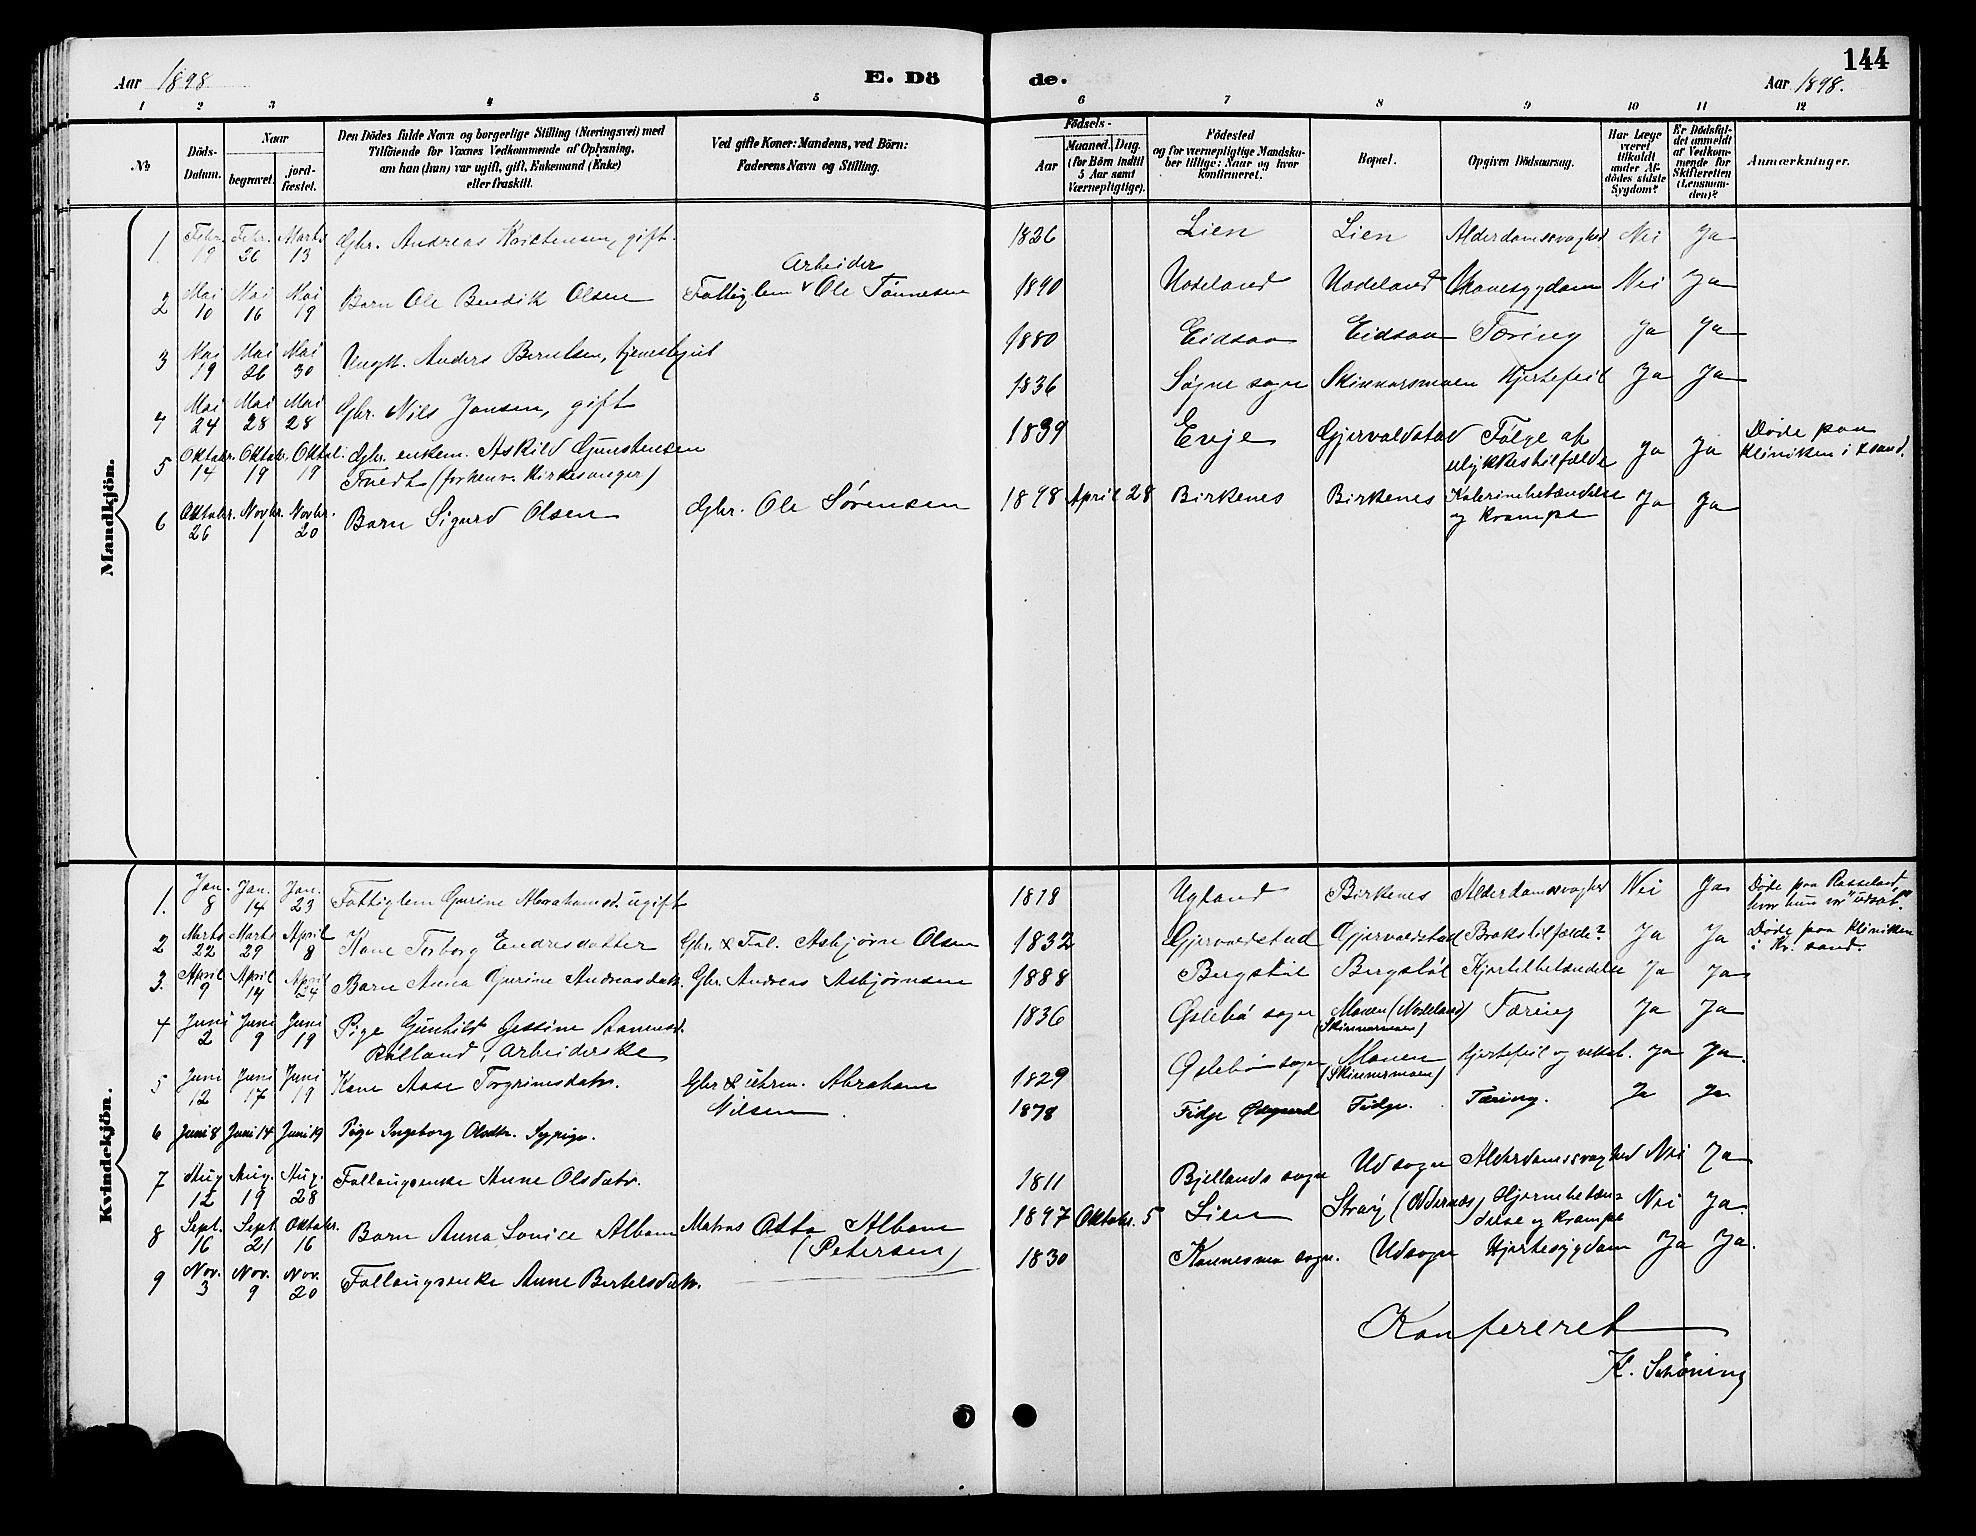 144
Aar 1898
E. Dö
de.
Aar 1898.
1 2 3 4 5 6 7 8 9 10 11 12
№
Döds-
Datum.
Naar
begravet.
jord-
fæstet.
Den Dödes fulde Navn og borgerlige Stilling (Næringsvei) med
Tilföiende for Voxnes Vedkommende af Oplysning,
om han (hun) var ugift, gift, Enkemand (Enke)
eller fraskilt.
Ved gifte Koner: Mandens, ved Börn:
Faderens Navn og Stilling.
Födsels-
Aar
Maaned. Dag.
(for Börn indtil
5 Aar samt
Værnepligtige).
Födested
og for værnepligtige Mandska-
ber tillige: Naar og hvor
konfirmeret.
Bopæl.
Opgiven Dödsaarsag.
Har Læge
været
tilkaldt
under Af-
dödes sidste
Sygdom?
Er Dödsfal-
det anmeldt
af Vedkom-
mende for
Skifteretten
(Lensman-
den)?
Anmærkninger.
Mandkjön.
1. Febr. 19 Febr. 26 Marts 13 Gbr. Andreas Kristensen, gift. 1826 Lien Lien Alderdomssvaghed Nei Ja
2 Mai 10 Mai 16 Mai 19 Barn Ole Bendik Olsen Fattiglem & Arbeider Ole Tønnesen 1890 Uodeland Uodeland Nei Ja
3 Mai 19 Mai 26 Mai 30 Ungk. Anders Berntsen, tjenestegut 1880 Eidsaa Eidsaa Tæring Ja Ja
4 Mai 24 Mai 28 Mai 28 Gbr. Nils Jansen, gift 1836 Søgne sogn Skinnarsmoen Hjertefeil Ja Ja
5 Oktobr. 14 Oktobr. 19 Oktob. 19 Gbr. enkem. Askild Gunstensen
Tvedt (forhenv. Kirkesanger) 1839 Evje Gjervoldstad Følge af
ulykkestilfælde Ja Ja Døde paa
kliniken i Xsand.
6 Oktobr. 26 Novbr. 1 Novbr. 20 Barn Sigurd Olsen Gbr. Ole Sørensen 1898 April 28 Birkenes Birkenes
og krampe Ja Ja
Kvindekjön.
1. Jan. 8 Jan. 14 Jan. 23 Fattiglem Gurine Abrahamsd. ugift Ugland Birkenes Alderdomssvaghed Nei Ja Døde paa Rosseland,
hvor hun var "udsat".
2 Marts 22 Marts 29 April 8 Kone Torborg Endresdatter Gbr. & Asbjørn Olsen 1832 Gjervoldstad Gjervoldstad Brokstilfælde? Ja Ja Døde paa Kliniken
i Kr. sand.
3. April 9 April 14 April 24 Barn Anna Gurine Andreasdatr. Gbr. Andreas Asbjørnsen 1888 Bergstøl Bergstøl Ja Ja
4 Juni 2 Juni 9 Juni 19 Pige Gunhild Jessine
Røiland, Arbeiderske 1836 Øslebø sogn Monen (Nodeland)
(Skinnarmoen) Tæring Ja Ja
5 Juni 12 Juni 17 Juni 19 Kone Aase Torgrimsdatr. Gbr & uhrm. Abraham
Nilsen 1829 Øslebø sogn Monen
(Skinnermoen) Hjertefeil og Ja Ja.
6 Juni 8 Juni 14 Juni 19 Pige Ingeborg Olsdtr. Sypige. 1878 Fidje Ødegaard Fidje. Tæring. Ja Ja
7 Aug 12 Aug. 19 Aug. 28 Follaugsenke Anne Olsdatr. 1811 Bjellands sogn Udsogn Alderdomssvaghed Nei Ja
8 Sept. 16 Sept. 21 Oktobr. 16 Barn Anna Lovise Albom Matros Otto Albom
(Petersen) 1897 Oktobr. 5 Lien Straiø (Oddernæs) Hjernebetæn-
delse og krampe Nei Ja.
9 Nov. 3 Nov. 9 Nov. 20 Follaugsenke Anne Bertelsdatr. 1830 Udsogn Hjertesygdom Ja Ja.
Konfereret
K. Schöning